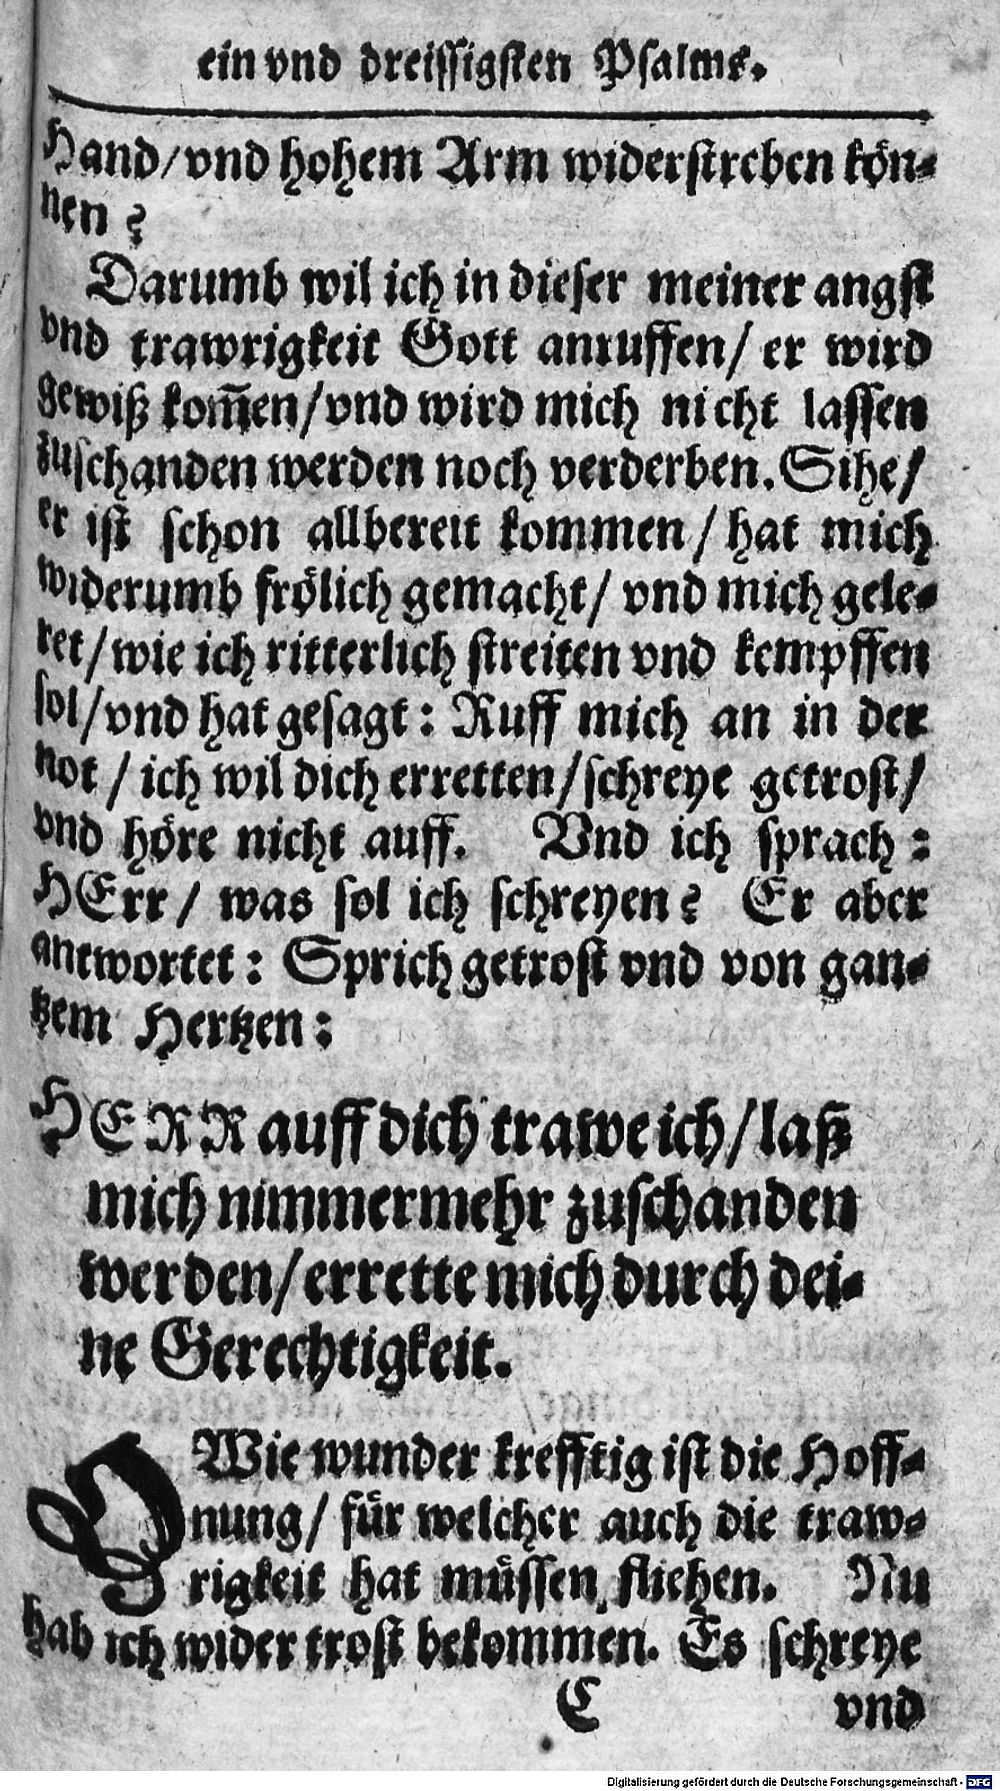 ein vnd dreissigsten Psalms.
Hand/vnd hohem Arm widerstreben kön-
nen?
Darumb wil ich in dieser meiner angst
vnd trawrigkeit Gott anruffen/ er wird
gewiß kom̃en/vnd wird mich nicht lassen
zuschanden werden noch verderben. Sihe/
er ist schon allbereit kommen/ hat mich
widerumb frölich gemacht/ vnd mich gele-
ret/wie ich ritterlich streiten vnd kempffen
sol/vnd hat gesagt: Ruff mich an in der
not/ ich wil dich erretten/schreye getrost/
vnd höre nicht auff. Vnd ich sprach:
HErr/ was sol ich schreyen? Er aber
antwortet: Sprich getrost vnd von gan-
tzem Hertzen:
HERR auff dich trawe ich/laß
mich nimmermehr zuschanden
werden/errette mich durch dei-
ne Gerechtigkeit.
OWie wunder krefftig ist die Hoff-
nung/ für welcher auch die traw-
rigkeit hat müssen fliehen. Nu
hab ich wider trost bekommen. Es schreye
C vnd
Digitalisierung gefördert durch die Deutsche Forschungsgemeinschaft - DFG